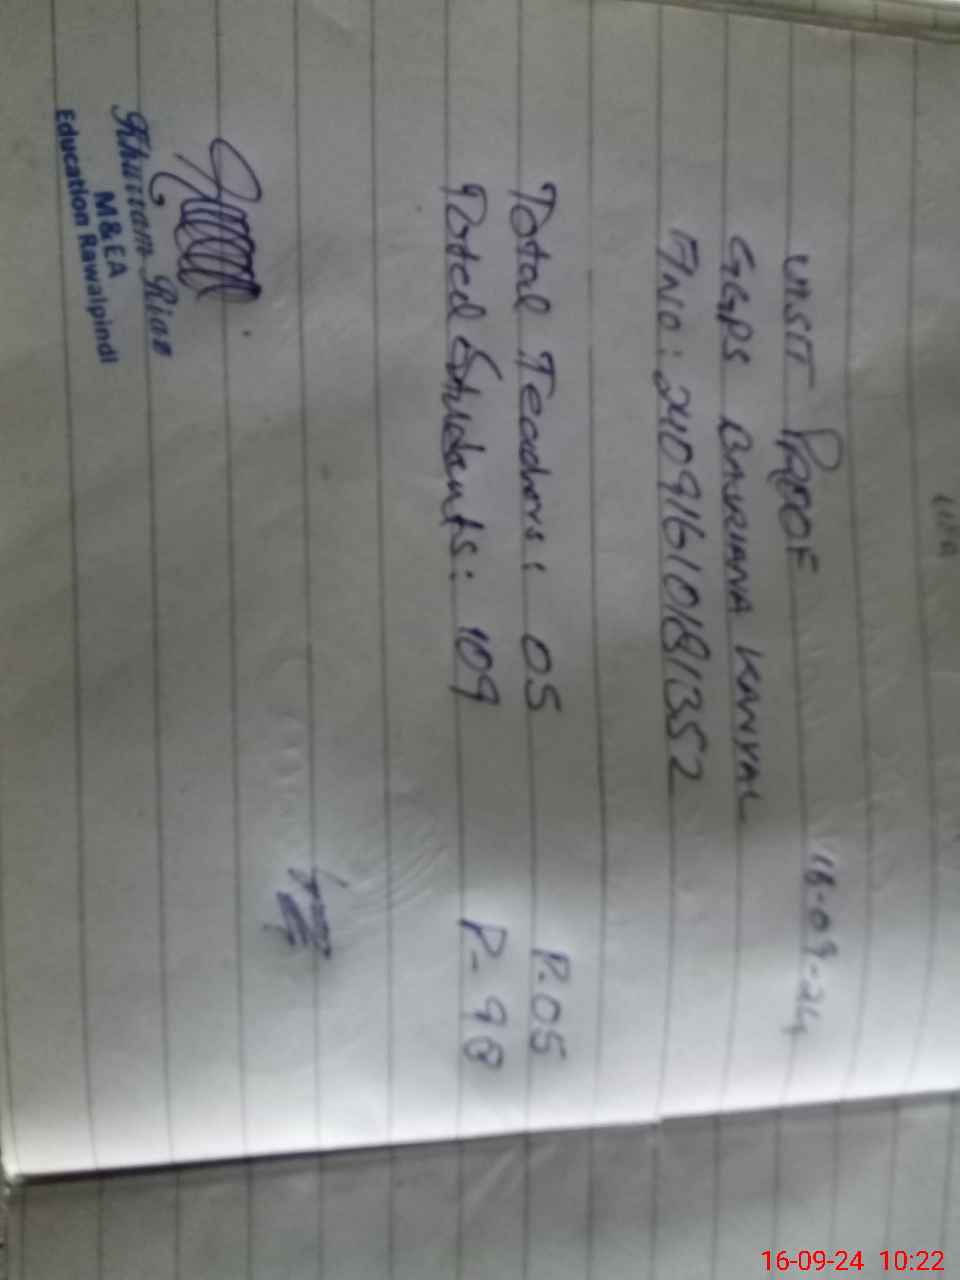 VISIT PROOF 16-09-24
GGPS BHURIANA KANYAL
F/No: 2409161018/1352
Total Teachers: 05 P-05
Total Students: 109 P-98
Khurram Riaz
M&EA
Education Rawalpindi
16-09-24 10:22